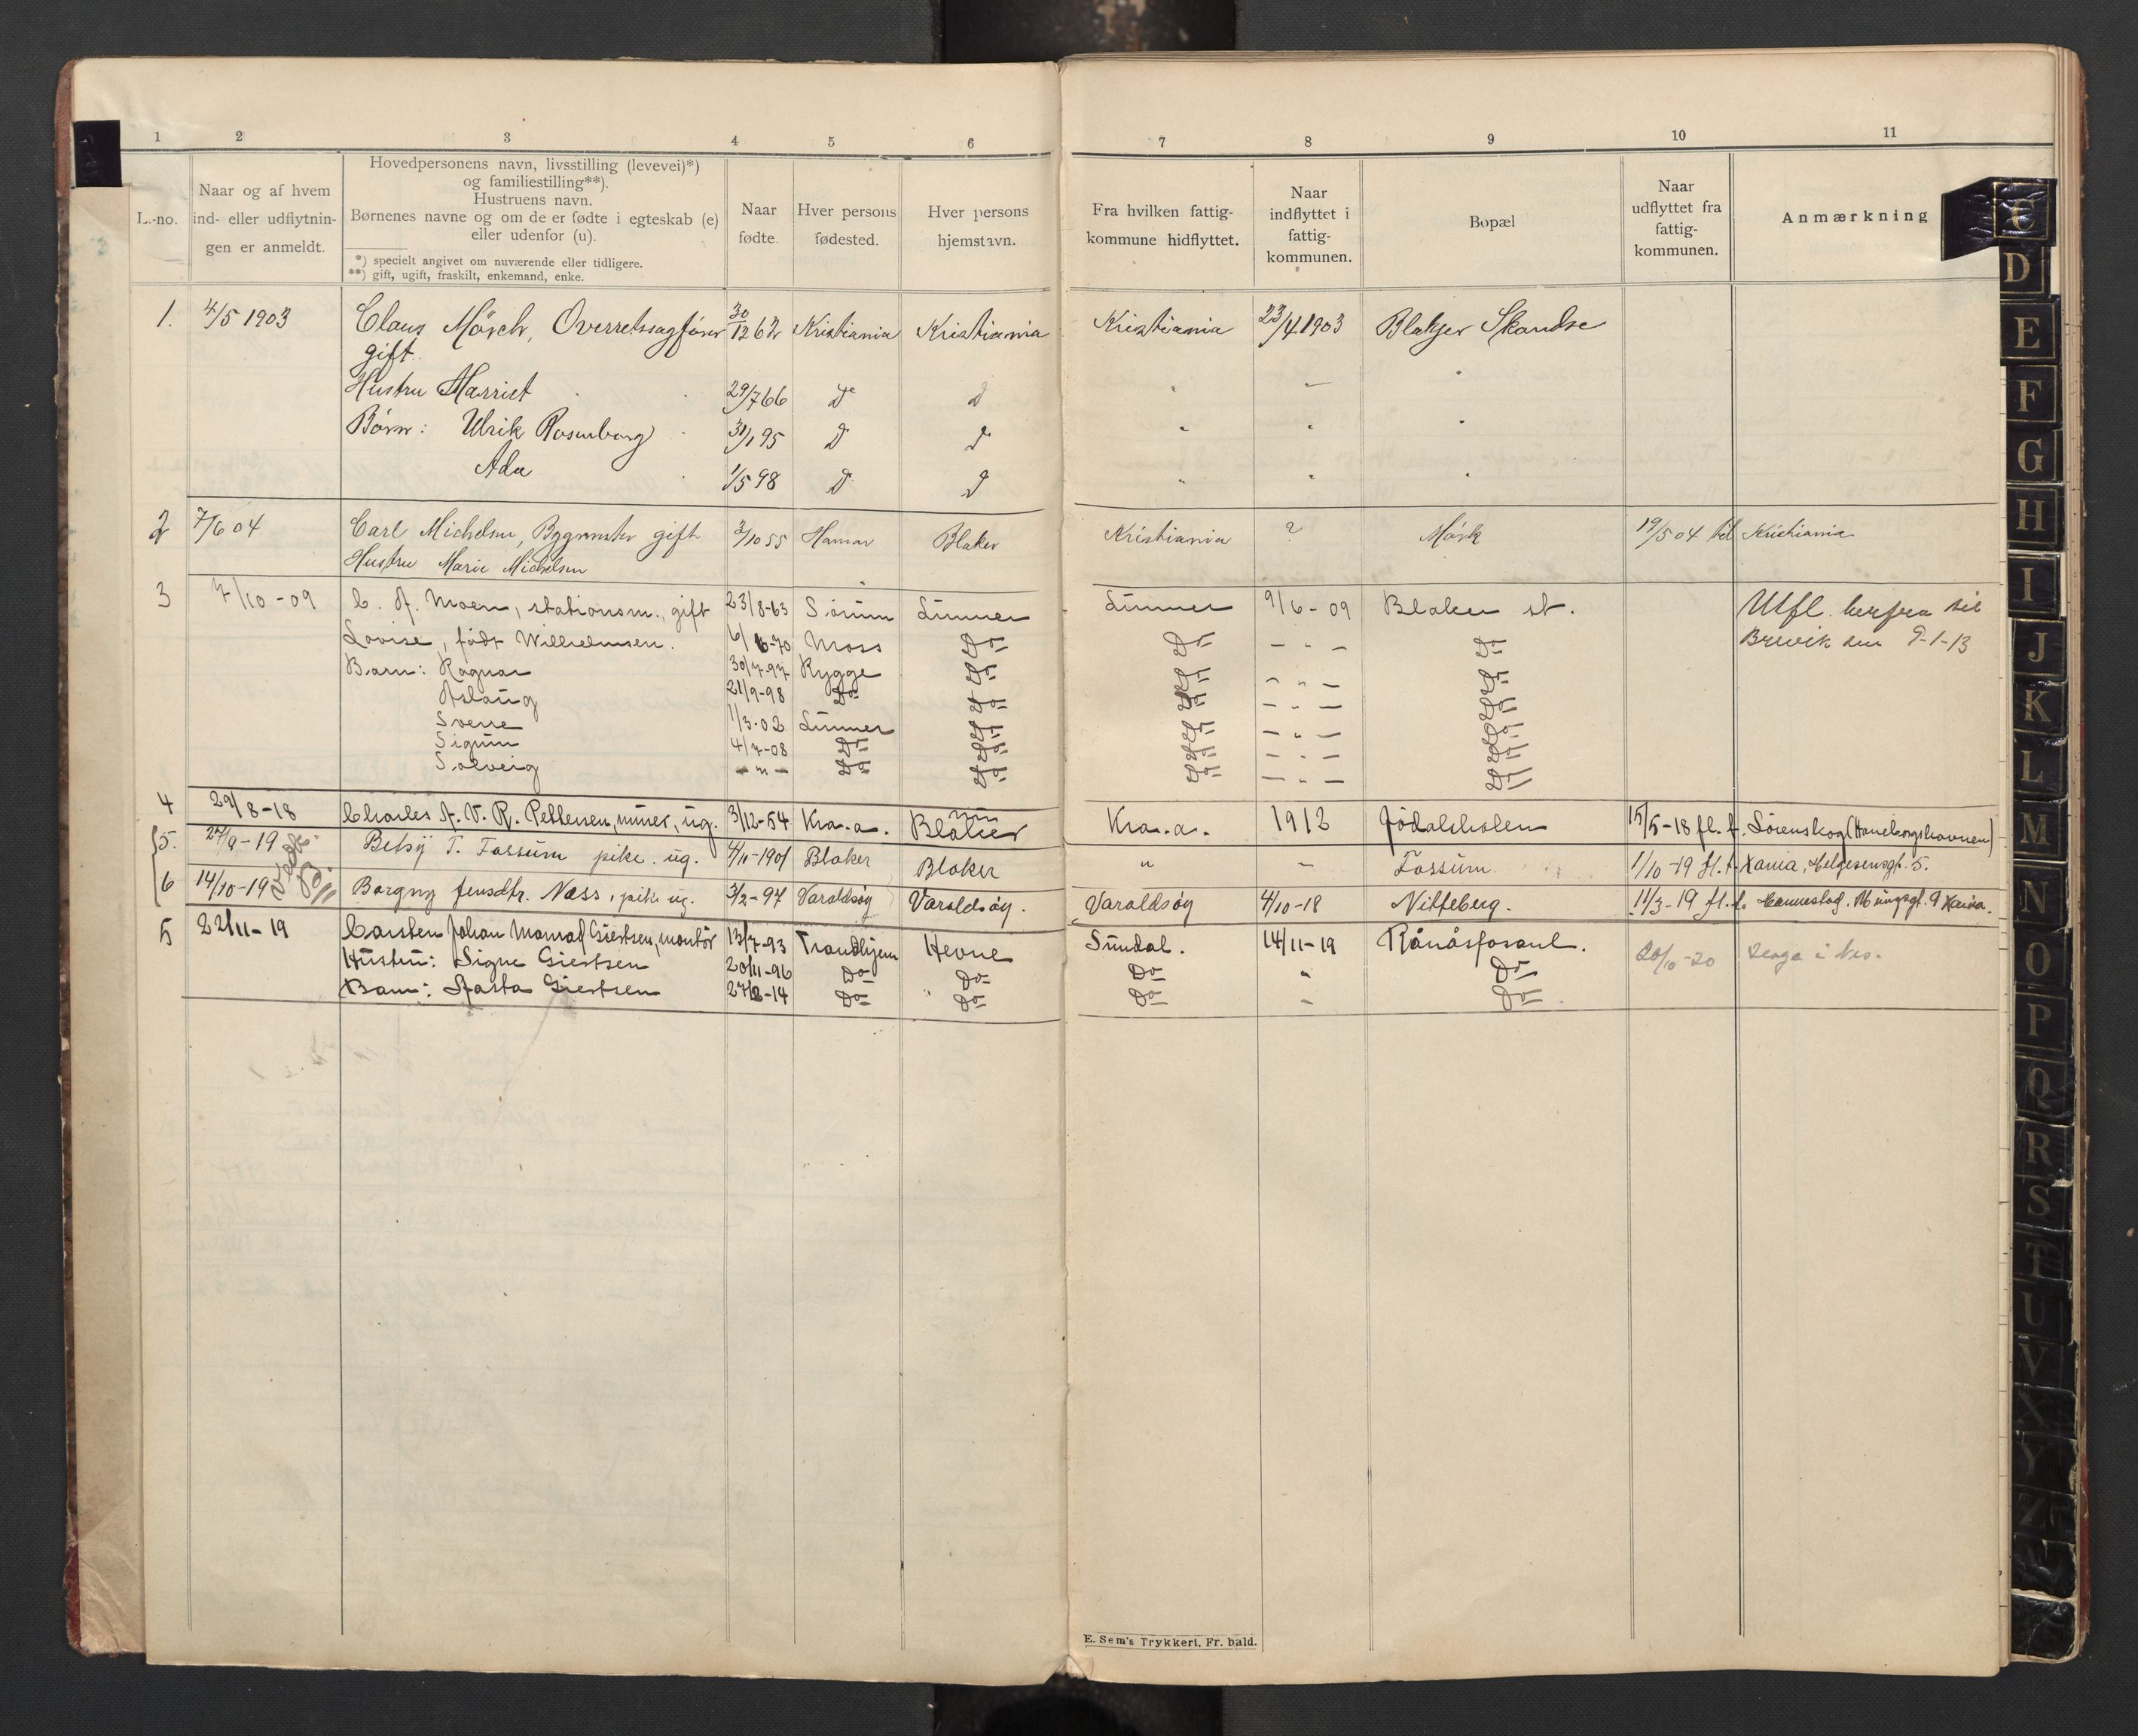 1 2 3 4 5 6 7 8 9 10 11
L.-no.
Naar og af hvem
ind- eller udflytnin-
gen er anmeldt.
Hovedpersonens navn, livsstilling (levevei)*)
og familiestilling**).
Hustruens navn.
Børnenes navne og om de er fødte i egteskab (e)
eller udenfor (u).
*) specielt angivet om nuværende eller tidligere.
**) gift, ugift, fraskilt, enkemand, enke.
Naar
fødte.
Hver persons
fødested.
Hver persons
hjemstavn.
Fra hvilken fattig-
kommune hidflyttet.
Naar
indflyttet i
fattig-
kommunen.
Bopæl
Naar
udflyttet fra
fattig-
kommunen.
Anmærkning
1. 4/5 1903 Claus Mörch, Overretssagfører 30/12 62 Kristiania Kristiania Kristiania 23/4 1903 Blakjer Skandse
gift
Hustru Harriet 29/7 66 D D " — "
Børn: Ulrik Rosenborg 31/1 95 D D " " "
Ada 1/5 98 D D " " "
2 7/6 04 Carl Michelsen, Bygmester gift 3/10 55 Hamar Blaker Kristiania ? Mörk 19/5 04 til Kristiania
Hustru Marie Michelsen
3 7/10-09 C. A. Moen, stationsm., gift 23/8-63 Sörum Lunner Lunner 9/6-09 Blaker st. Utfl. herfra til
Lovise, födt Wilhelmsen. 6/6-70 Moss Do Do — " — Do Brevik den 9-1-13
Barn: Ragnar 30/7-97 Rygge Do Do — " — Do
Aslaug 21/9-98 Do Do Do — " — Do
Sverre 1/3-02 Lunner Do Do — " — Do
Sigrun 4/7-08 Do Do Do — " — Do
Solveig — " — Do Do Do — " — Do
4 29/8-18 Charles A. V. R. Pettersen, murer, ug. 3/12-54 Kra.a. Blaker Kra.a. 1912 Jödalsholen 15/5-18 fl. t. Lörenskog (Haneborghavnen)
5. 27/9-19 Betsÿ T. Fossum pike. ug. 4/11-1901 Blaker Blaker " — Fossum 1/10-19 fl. t. Xania, Helgesensgt. 5.
6 14/10-19 Borgny Jensdtr. Næss, pike ug. 3/2-97 Varaldsöy Varaldsöy. Varaldsöy 4/10-18 Nitteberg. 11/3-19 fl. t.
5 22/11-19 Carsten Johan Monrad Giertsen, montör 13/7-93 Trondhjem Hevne Sundal. 14/11-19 Rånåsfossanl. 20/10-20
Hustru: Signe Giertsen 20/11-96 Do Do Do " Do
Barn: Asta Giertsen 27/2-14 Do Do Do — Do
E. Sem's Trykkeri, Fr. hald.
C
D
E
F
G
H
I
J
K
L
M
N
O
P
Q
R
S
T
U
V
X
Y
Z